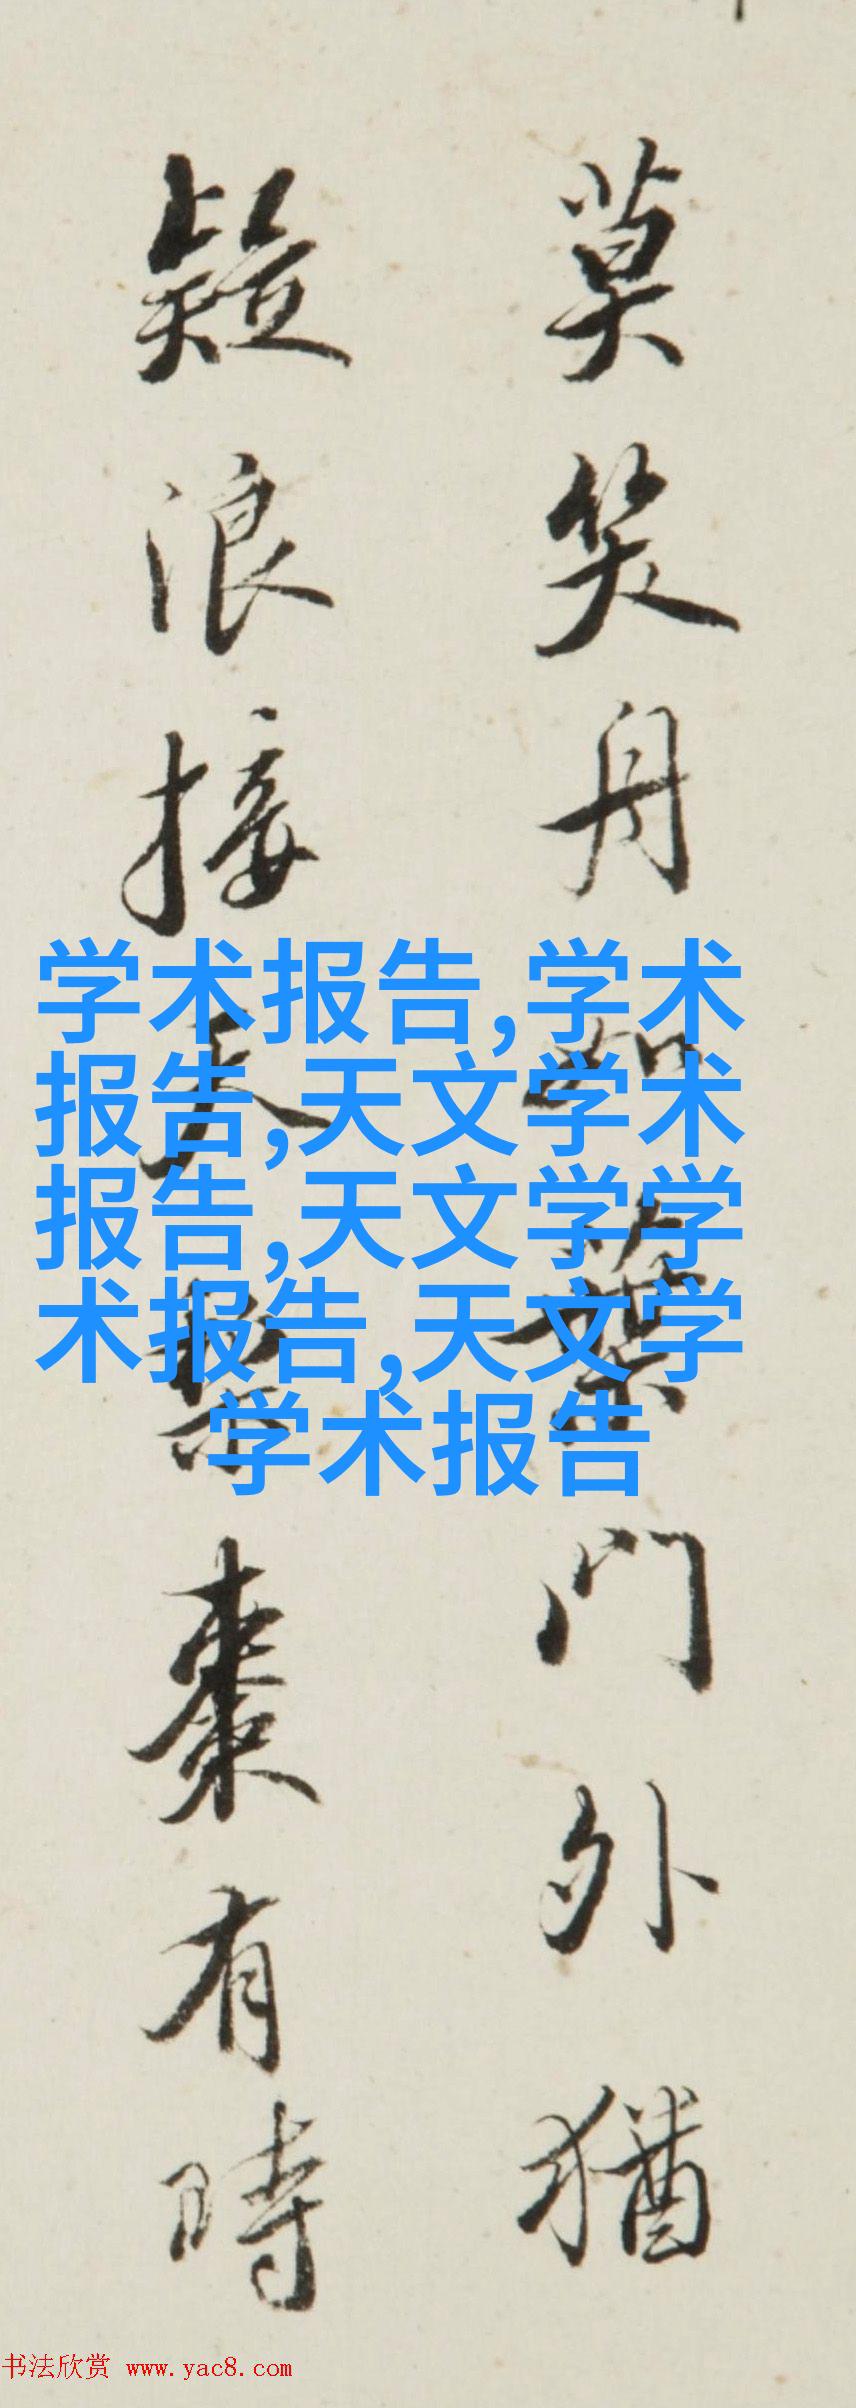 莫笑舟如葉門外猶
疑浪接天熱棗有時
学术报告,学术
报告,天文学术
报告,天文学学
术报告,天文学
学术报告
书法欣赏 www.yac8.com